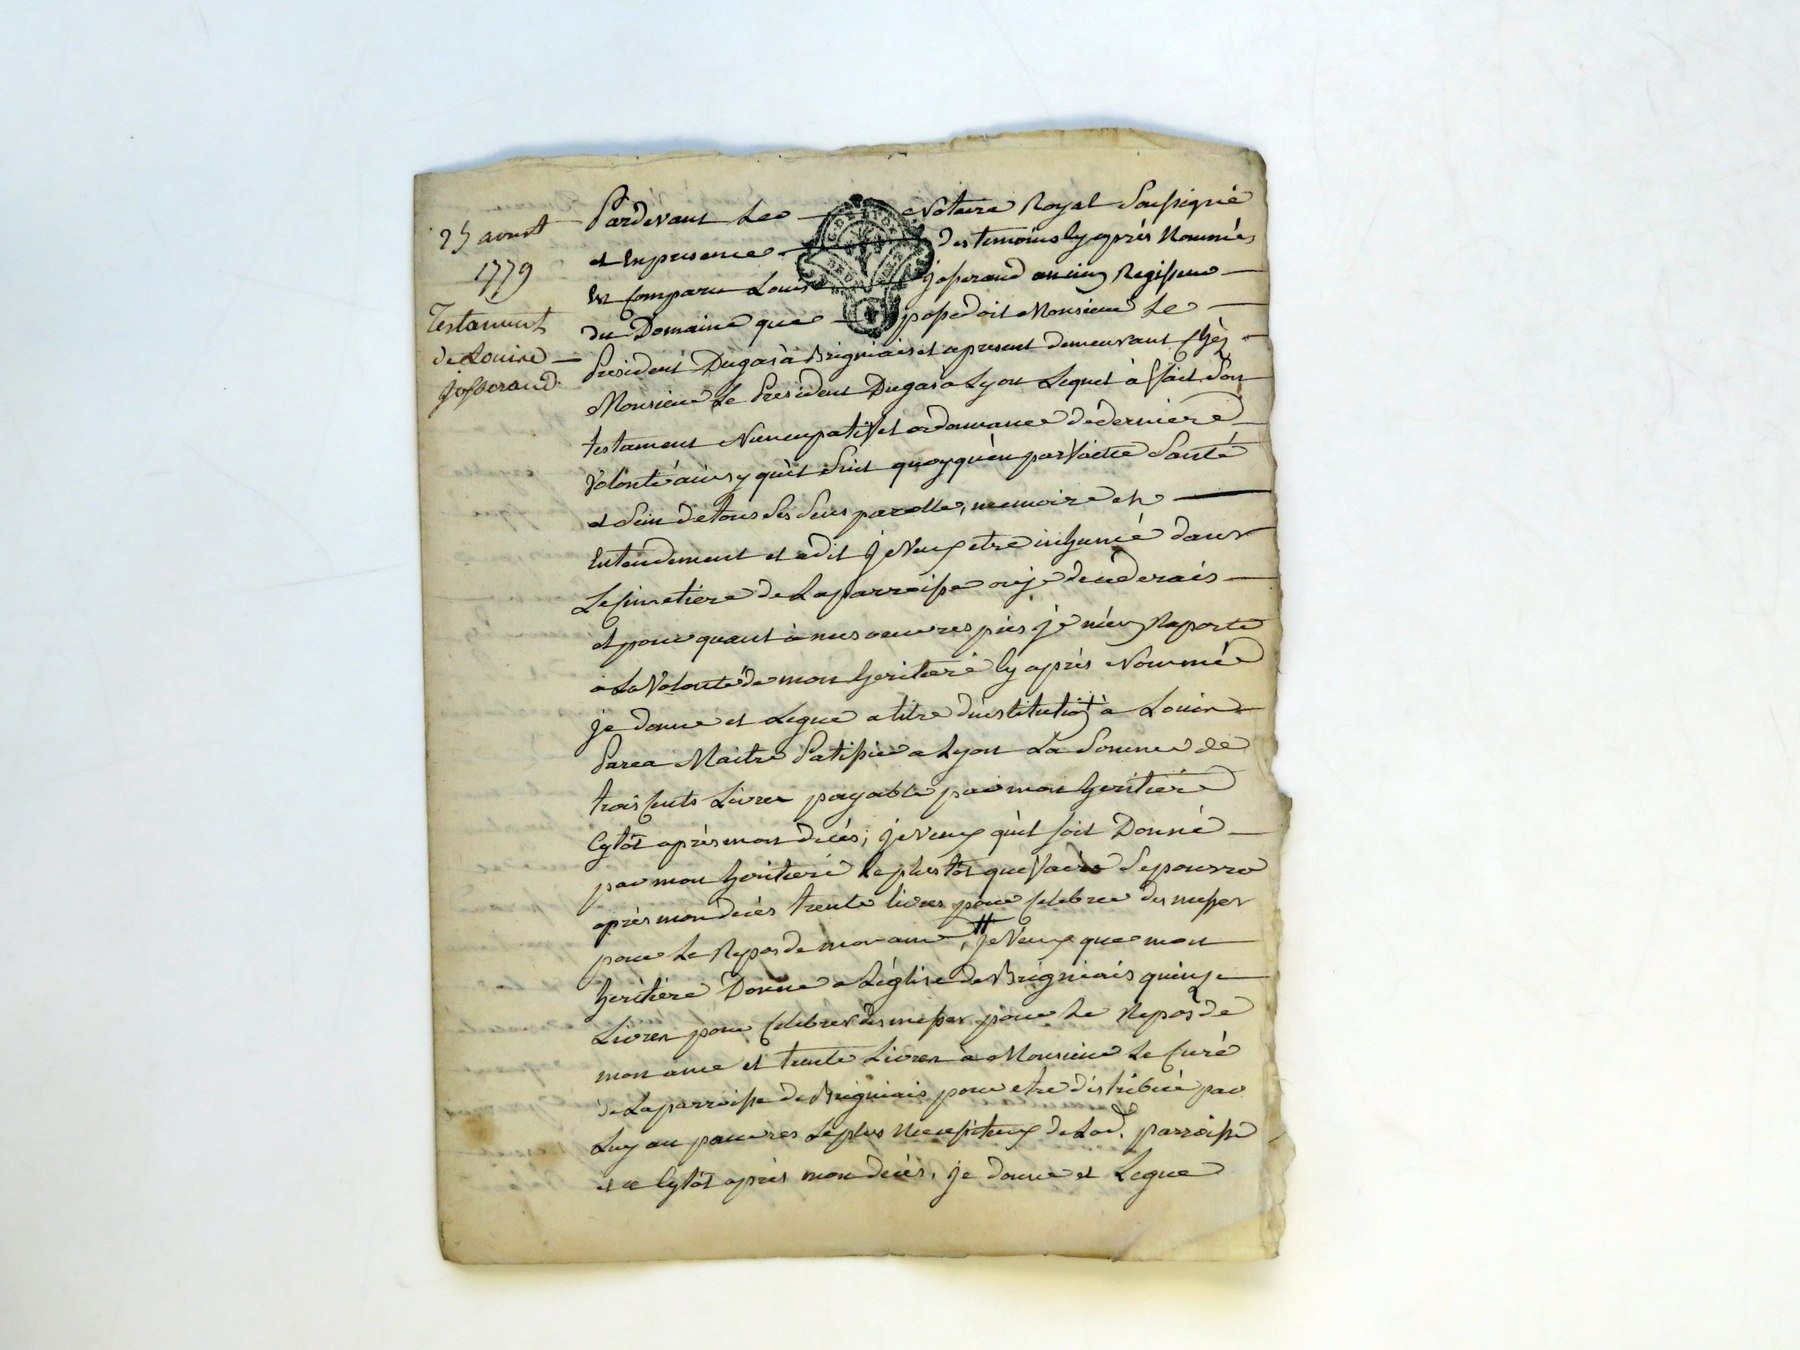 25 aoust
1779
Testament
de Louis
Josserand
Pardevant Le Notaire Royal Soussigné
et En presence des temoins Cy après Nommés
Est Comparu Louis Josserand ancien Regisseur
du Domaine que possedoit Monsieur Le
President Dugas à Brigniais et apresent demeurant chéz
Monsieur Le President Dugas a Lyon Lequel à fait Son
testament Nuncupatif et ordonnance de derniere
Volonté ainsy qu'il suit quoyquèn parfaitte Santé
et Sain de tous Ses Sens parolle, memoire et
Entendement et a dit Je Veux etre inhumé dans
Le Cimetiere de La parroisse ou je decederais
et pour quant à mes oeuvres pies je m'en Raporte
a La Volonté de mon heritiere Cy après Nommée
je donne et Legue a titre d'institution à Louis
Maitre Patissier a Lyon La Somme de
trois Cents Livres payable par mon heritiere
Cytôt après mon decés; je Veux qu'il soit Donné
par mon heritiere Le plus tot que faire Se pourra
après mon decés trente livres pour celebrer des messes
pour Le Repos de mon ame, je Veux que mon
heritiere Donne a L'église de Brigniais quinze
Livres pour Celebrer des messes pour Le Repos de
mon ame et trente Livres à Monsieur Le Curé
de La parroisse de Brigniais pour etre distribué par
Luy au pauvres Le plus Necessiteux de Lad. parroisse
et ce Cytôt après mon decés, je donne et Legue